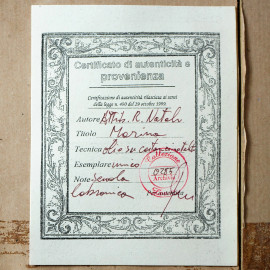 Certificato di autenticità e
provenienza
Certificazione di autenticità rilasciata ai sensi
della legge n. 490 del 29 ottobre 1999.
Autore R. Natali
Titolo Marina
Tecnica olio su cartone telato
Esemplare unico
Note Scuola
Labronica
Collezione
0284
Archivio